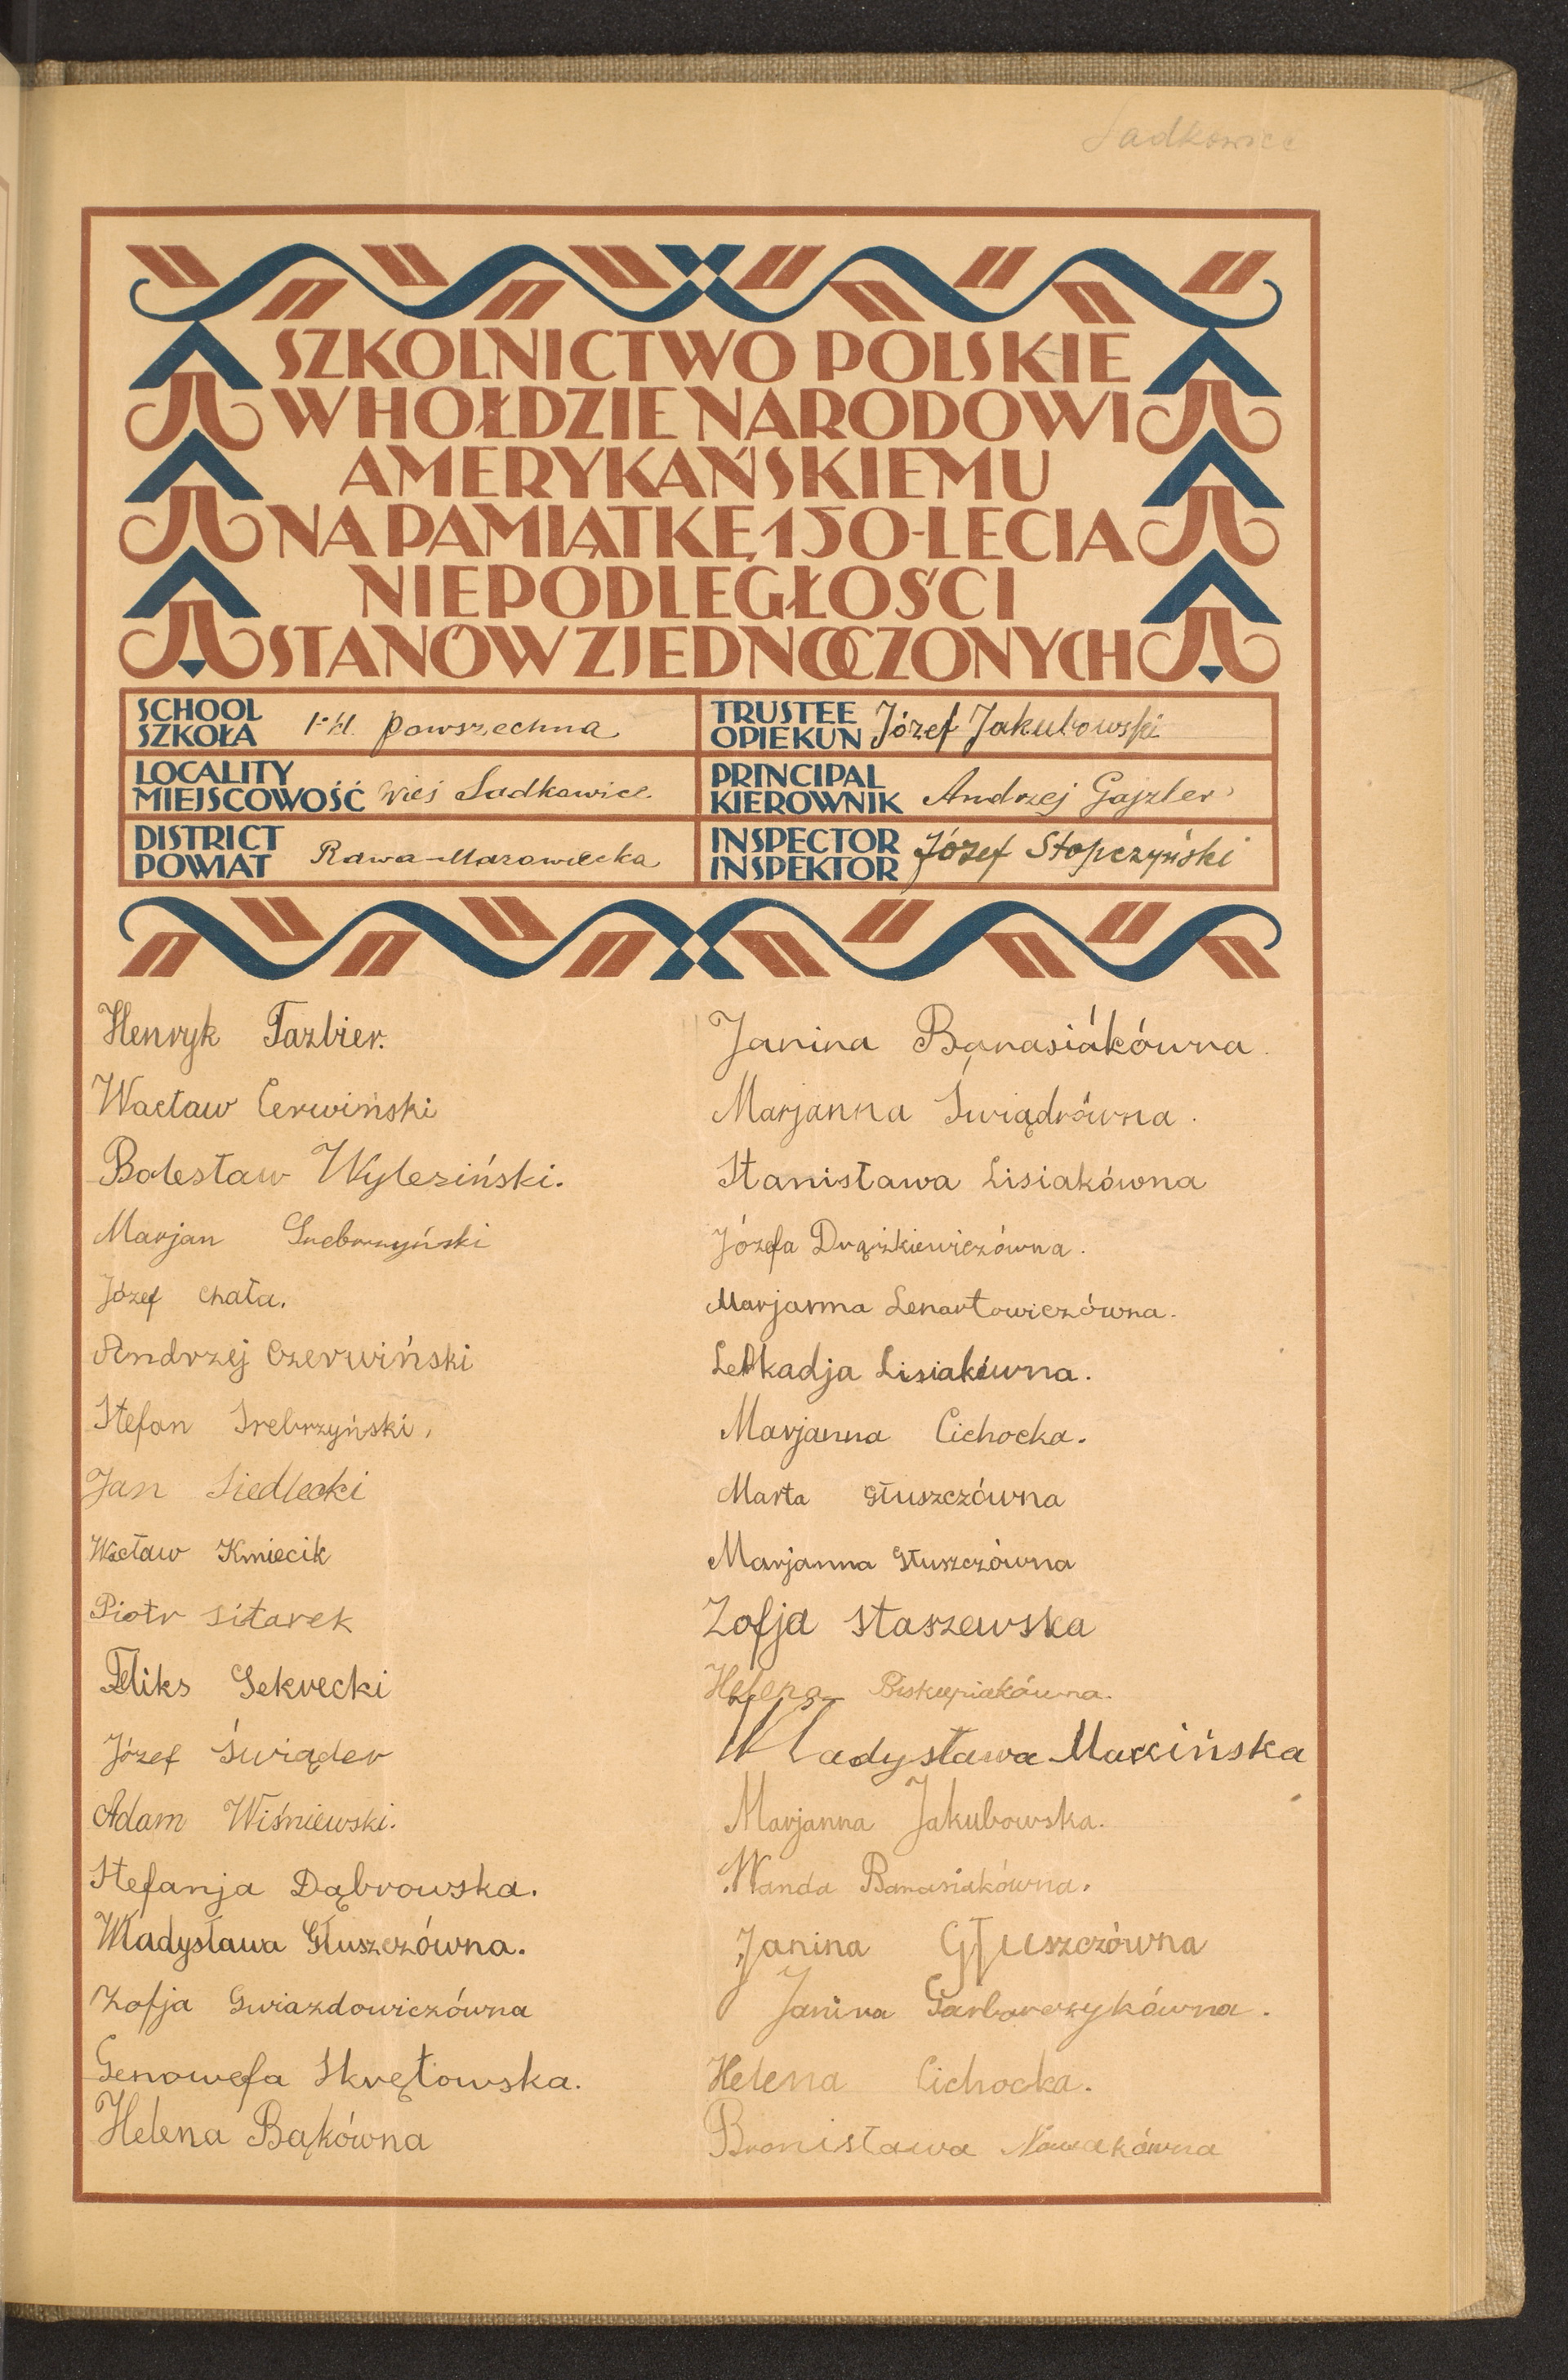 Sadkowice
SZKOLNICTWO POLSKIE
W HOŁDZIE NARODOWI
AMERYKAŃSKIEMU
NA PAMIĄTKĘ 150-LECIA
NIEPODLEGŁOŚCI
STANÓW ZJEDNOCZONYCH
SCHOOL
SZKOŁA 1·kl. powszechna
LOCALITY
MIEJSCOWOŚĆ wieś Sadkowice.
DISTRICT
POWIAT Rawa-Mazowiecka
TRUSTEE
OPIEKUN Józef Jakubowski
PRINCIPAL
KIEROWNIK Andrzej Gajzler
INSPECTOR
INSPEKTOR Józef Stopczyński
Henryk Tazbier.
Wacław Cerwiński
Bolesław Wyleziński.
Marjan Srebrzyński
Józef Chała.
Andrzej Czerwiński
Stefan Srebrzyński.
Jan Siedlecki
Wacław Kmiecik
Piotr Sitarek
Feliks Sekrecki
Józef Świąder
Adam Wiśniewski.
Stefanja Dąbrowska.
Władysława Głuszczówna.
Zofja Gwiazdowiczówna
Genowefa Skrętowska.
Helena Bąkówna
Janina Banasiákówna.
Marjanna Świądrówna.
Stanisława Lisiakówna
Józefa Drążkiewiczówna.
Marjanna Lenartowiczówna.
Leokadja Lisiakówna.
Marjanna Cichocka.
Marta Głuszczówna
Marjanna Głuszczówna
Zofja Staszewska
Helena Biskupiakówna.
Władysława
Marjanna Jakubowska.
Wanda Banasiakówna.
Janina Głuszczówna
Janina Garbarczykówna.
Helena Cichocka.
Bronisława Nowakówna